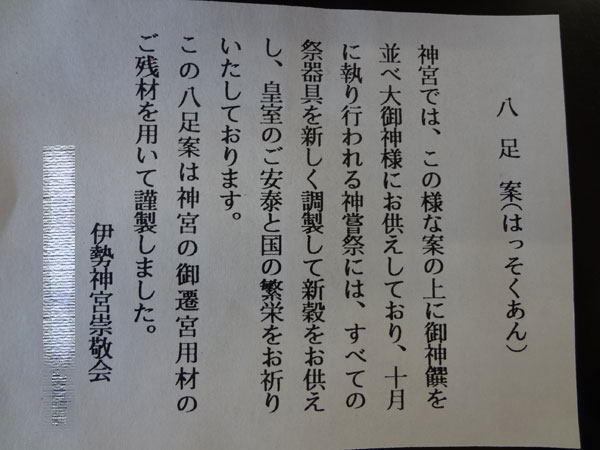 八足案(はっそくあん)
神宮では、この様な案の上に御神饌を
並べ大御神様にお供えしており、十月
に執り行われる神嘗祭には、すべての
祭器具を新しく調製して新穀をお供え
し、皇室のご安泰と国の繁栄をお祈り
いたしております。
この八足案は神宮の御遷宮用材の
ご残材を用いて謹製しました。
伊勢神宮崇敬会